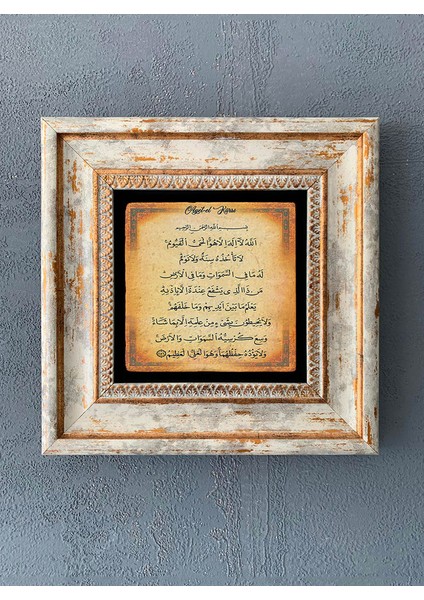 Ayet-el Kürsi
بِسْمِ اللّٰهِ الرَّحْمٰنِ الرَّحِيمِ
اَللّٰهُ لَٓا اِلٰهَ اِلَّا هُوَ اَلْحَيُّ الْقَيُّومُ
لَا تَأْخُذُهُ سِنَةٌ وَلَا نَوْمٌ
لَهُ مَا فِي السَّمٰوَاتِ وَمَا فِي الْاَرْضِ
مَنْ ذَا الَّذِي يَشْفَعُ عِنْدَهُ اِلَّا بِاِذْنِهِ
يَعْلَمُ مَا بَيْنَ اَيْدِيهِمْ وَمَا خَلْفَهُمْ
وَلَا يُحِيطُونَ بِشَيْءٍ مِنْ عِلْمِهِ اِلَّا بِمَا شَٓاءَ
وَسِعَ كُرْسِيُّهُ السَّمٰوَاتِ وَالْاَرْضَ
وَلَا يَؤُدُهُ حِفْظُهُمَا وَهُوَ الْعَلِيُّ الْعَظِيمُ